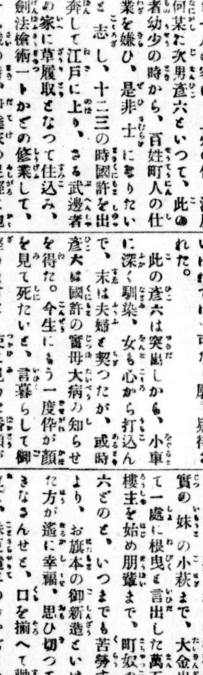 何某が次男彥六といつて、此の
者幼少の時から、百姓町人の仕
業を嫌ひ、是非士になりたい
と志し、十二三の時國許を出
奔して江戸に上り、さる武邊者
の家に草履取となつて住込み、
劍法槍術一トかどの修業して、
れた。
此の彥六は突出しから、小車
に深く馴染、女も心から打込ん
で、末は夫婦と契つたが、或時
彥六は國許の實母大病の知らせ
を得た。今生にもう一度伜が顏
を見て死たいと、言暮らして御
實の妹の小萩まで、大金出
て一處に根曳と言出した萬
樓主を始め朋輩まで、町奴の
六どのと、いつまでも苦勞す
より、お旗本の御新造といは
た方が遙に幸福、思ひ切つて
きなさんせと、口を揃へて